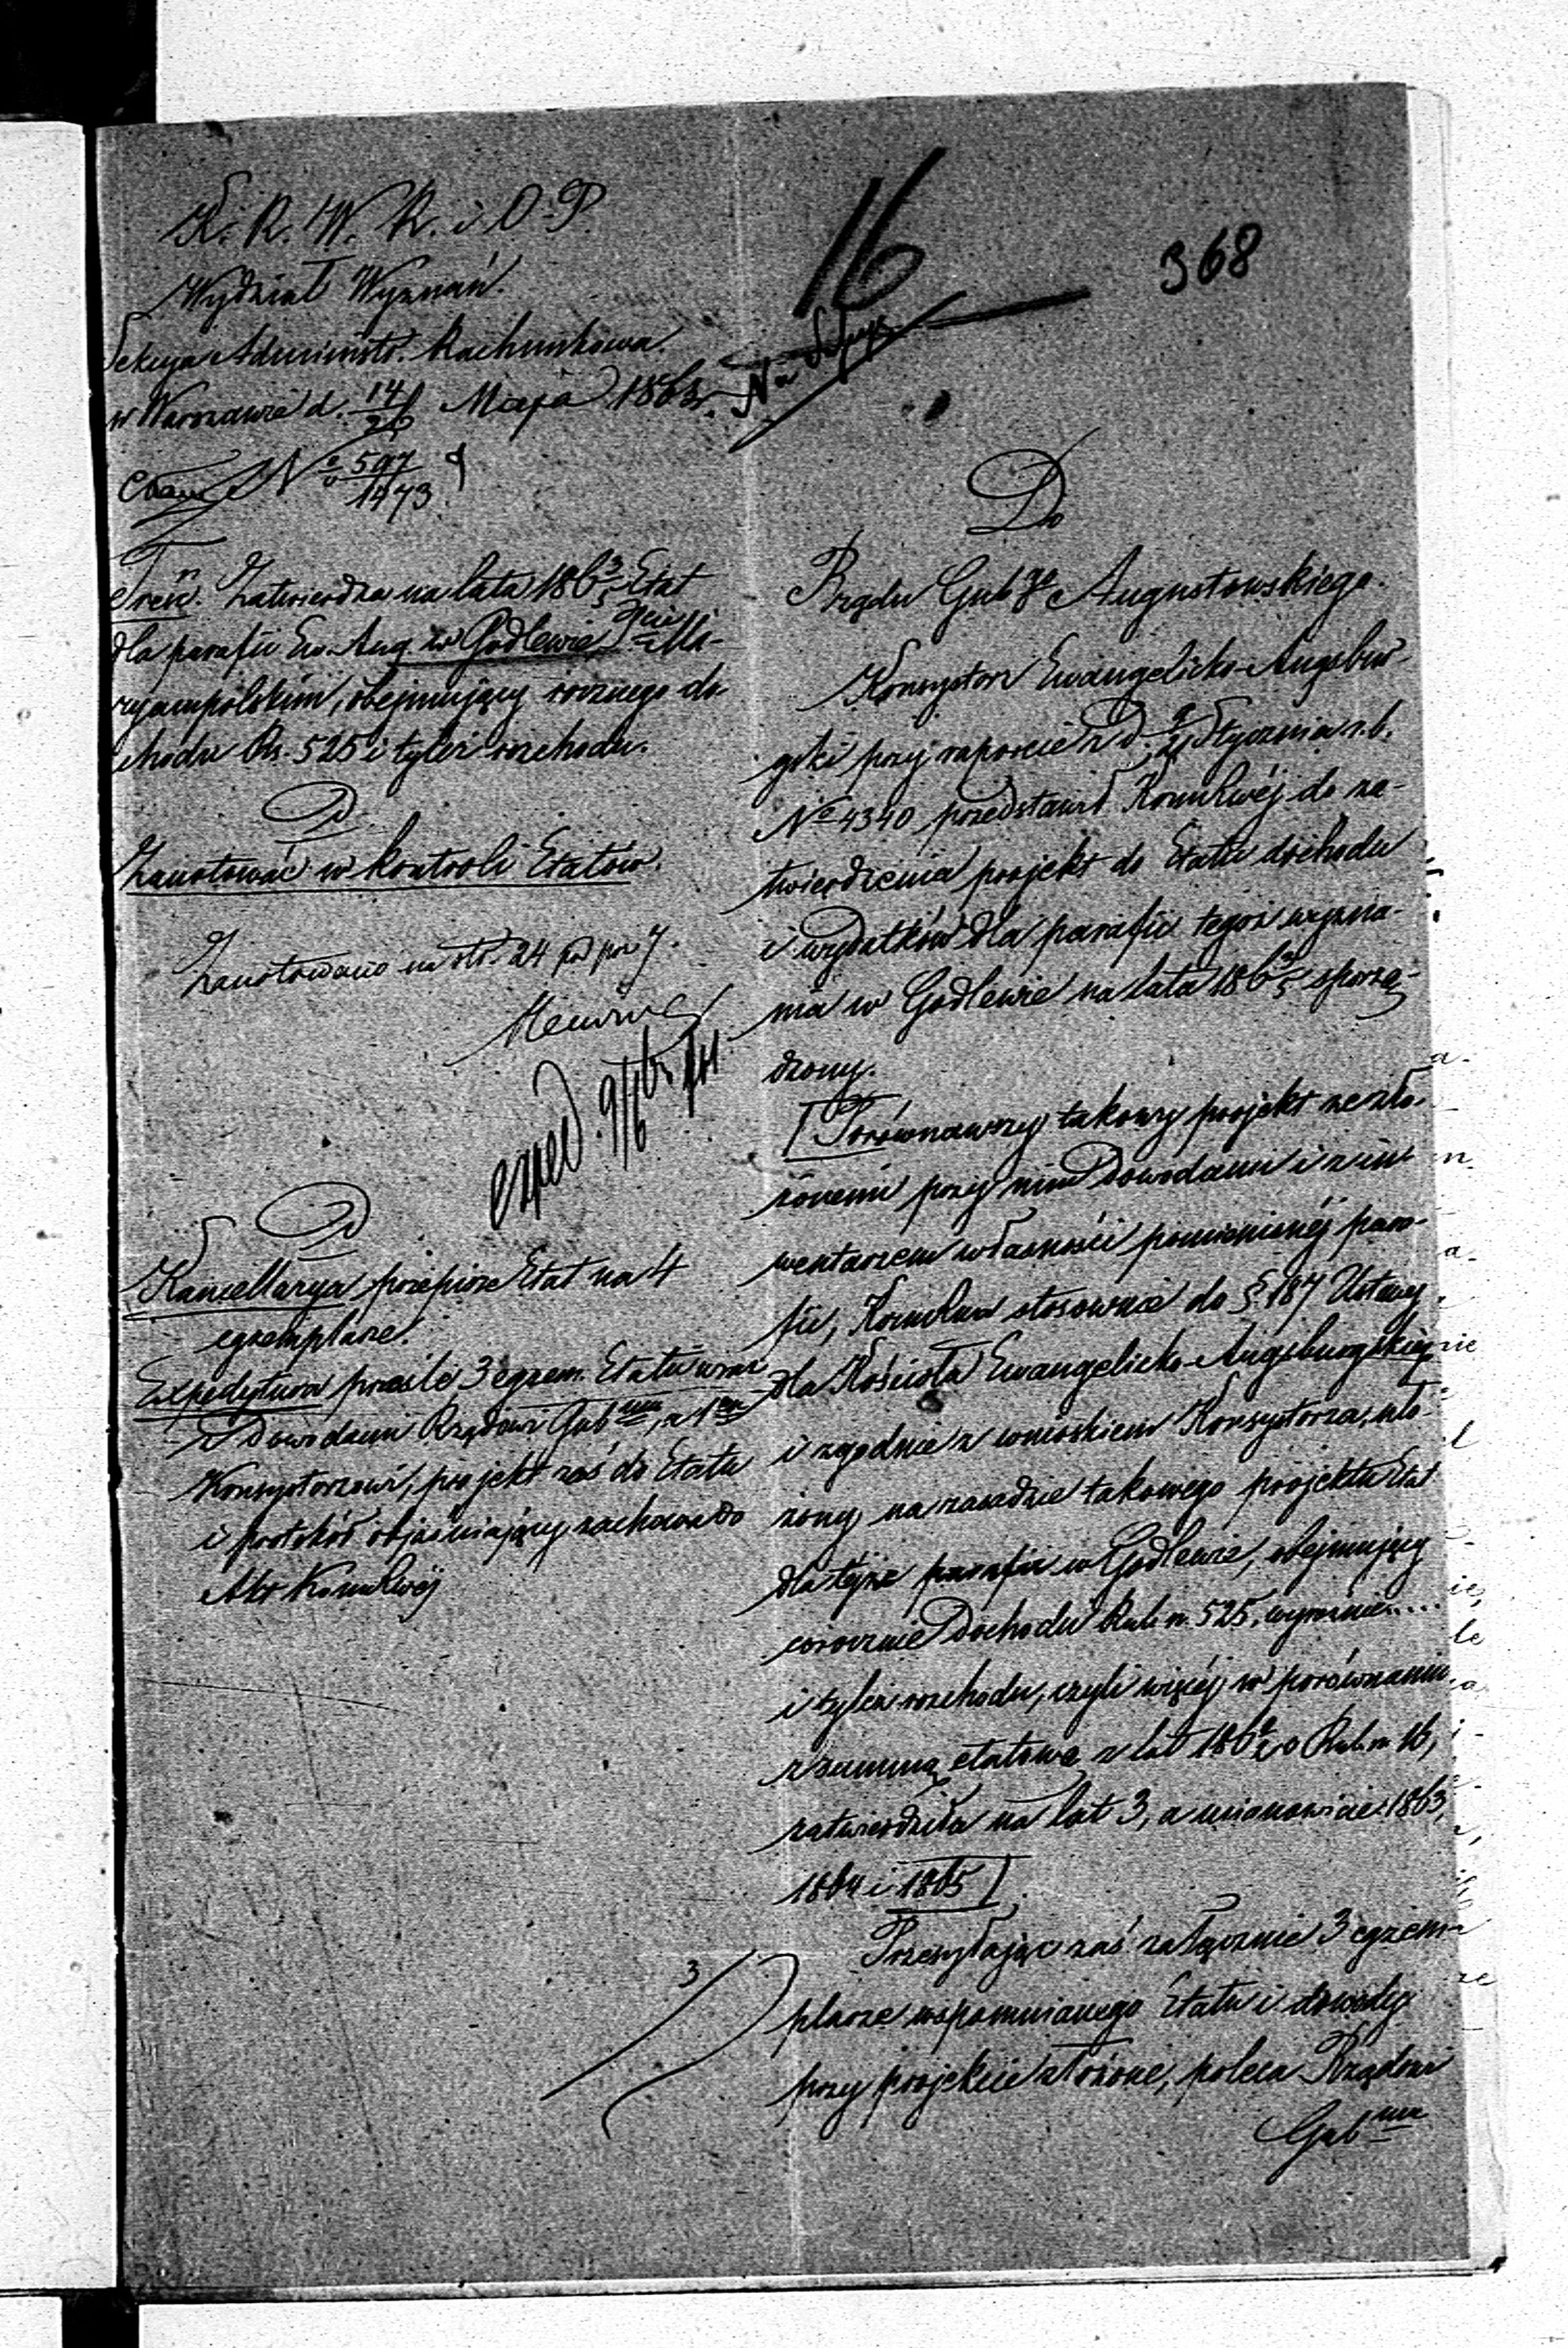 K. R. W. R. i O. P.
Wydział Wyznań.
Sekcya Administr. Rachunkowa.
w Warszawie d. 14/26 Maja 1863 r.
No 597/1473
16
368
Treść. Zatwierdza na lata 186 3/5 Etat
dla parafii Ew. Aug. w Godlewie Ma-
ryampolskim, obejmujący rocznego do-
chodu Rs. 525 i tyleż rozchodu.
D
Zanotować w kontroli Etatów.
Zanotowano na str. 24 pod poz 7.
exped. 9/6 63
D
Kancellarya przepisze Etat na 4
egzemplarze.
Expedytura prześle 3 egzem. Etatu wraz
z dowodami Rządowi Gubmu, a 1en
Konsystorzowi, projekt zaś do Etatu
i protokół objaśniający zachowa do
Akt Kom Rwéj
Do
Rządu Gubgo Augustowskiego.
Konsystorz Ewangelicko-Augsbur-
gski przy raporcie z d. 9/21 Stycznia r. b.
No 4340 przedstawił Kom Rwéj do za-
twierdzenia projekt do Etatu dochodu
i wydatków dla parafii tegoż wyzna-
nia w Godlewie na lata 186 3/5 sporzą-
dzony.
Porównawszy takowy projekt ze zło-
żonemi przy nim dowodami i z in-
wentarzem własności pomienionéj para-
fii, Kom Rwa stosownie do §. 187 Ustawy
dla Kościoła Ewangelicko-Augsburgskiego
i zgodnie z wnioskiem Konsystorza, uło-
żony na zasadzie takowego projektu Etat
dla tejże parafii w Godlewie, obejmujący
corocznie Dochodu Rub. sr. 525, wyraźnie....
i tyleż rozchodu, czyli więcéj w porównaniu
z summą etatową z lat 186 0/2 o Rub. sr. 16,
zatwierdziła na lat 3, a mianowicie: 1863,
1864 i 1865
Przesyłając zaś załącznie 3 egzem-
plarze wspomnianego Etatu i dowody
przy projekcie złożone, poleca Rządowi
Gubmu
3